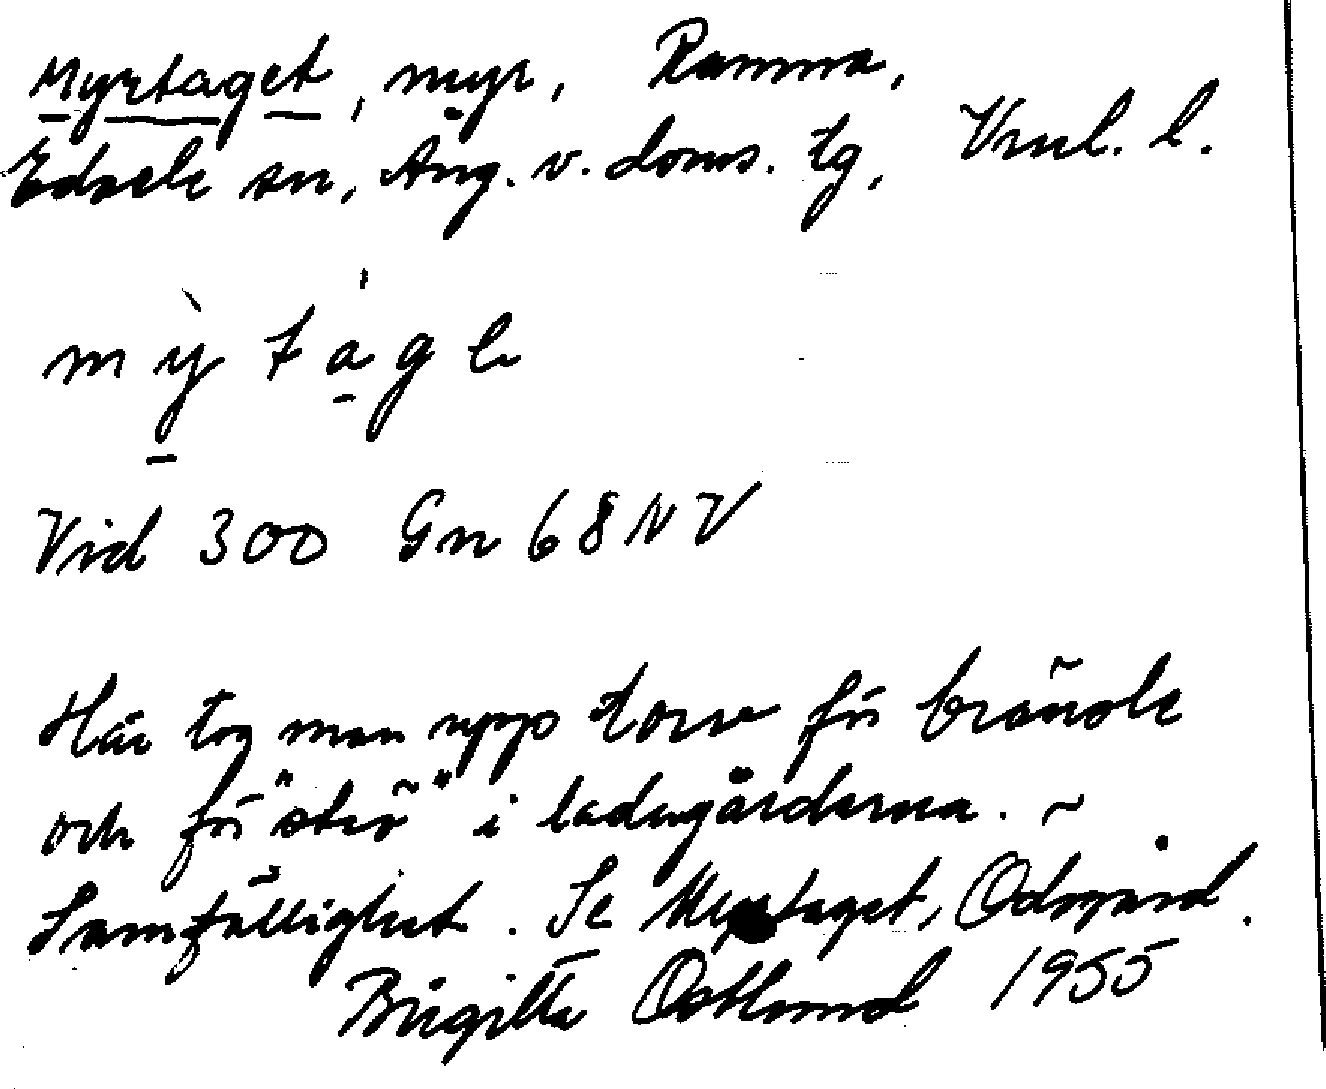 Myrtaget, myr, Ramma,
Edsele sn, Ång. v. doms. tg, Vnl. l.
mỳtágē
Vid 300 Gn 68 NV
Här tog man upp torv för bränsle
och för "strö" i ladugårderna. ~
Samfällighet. Se Myrtaget, Ödsgård.
Birgitta Östlund 1955